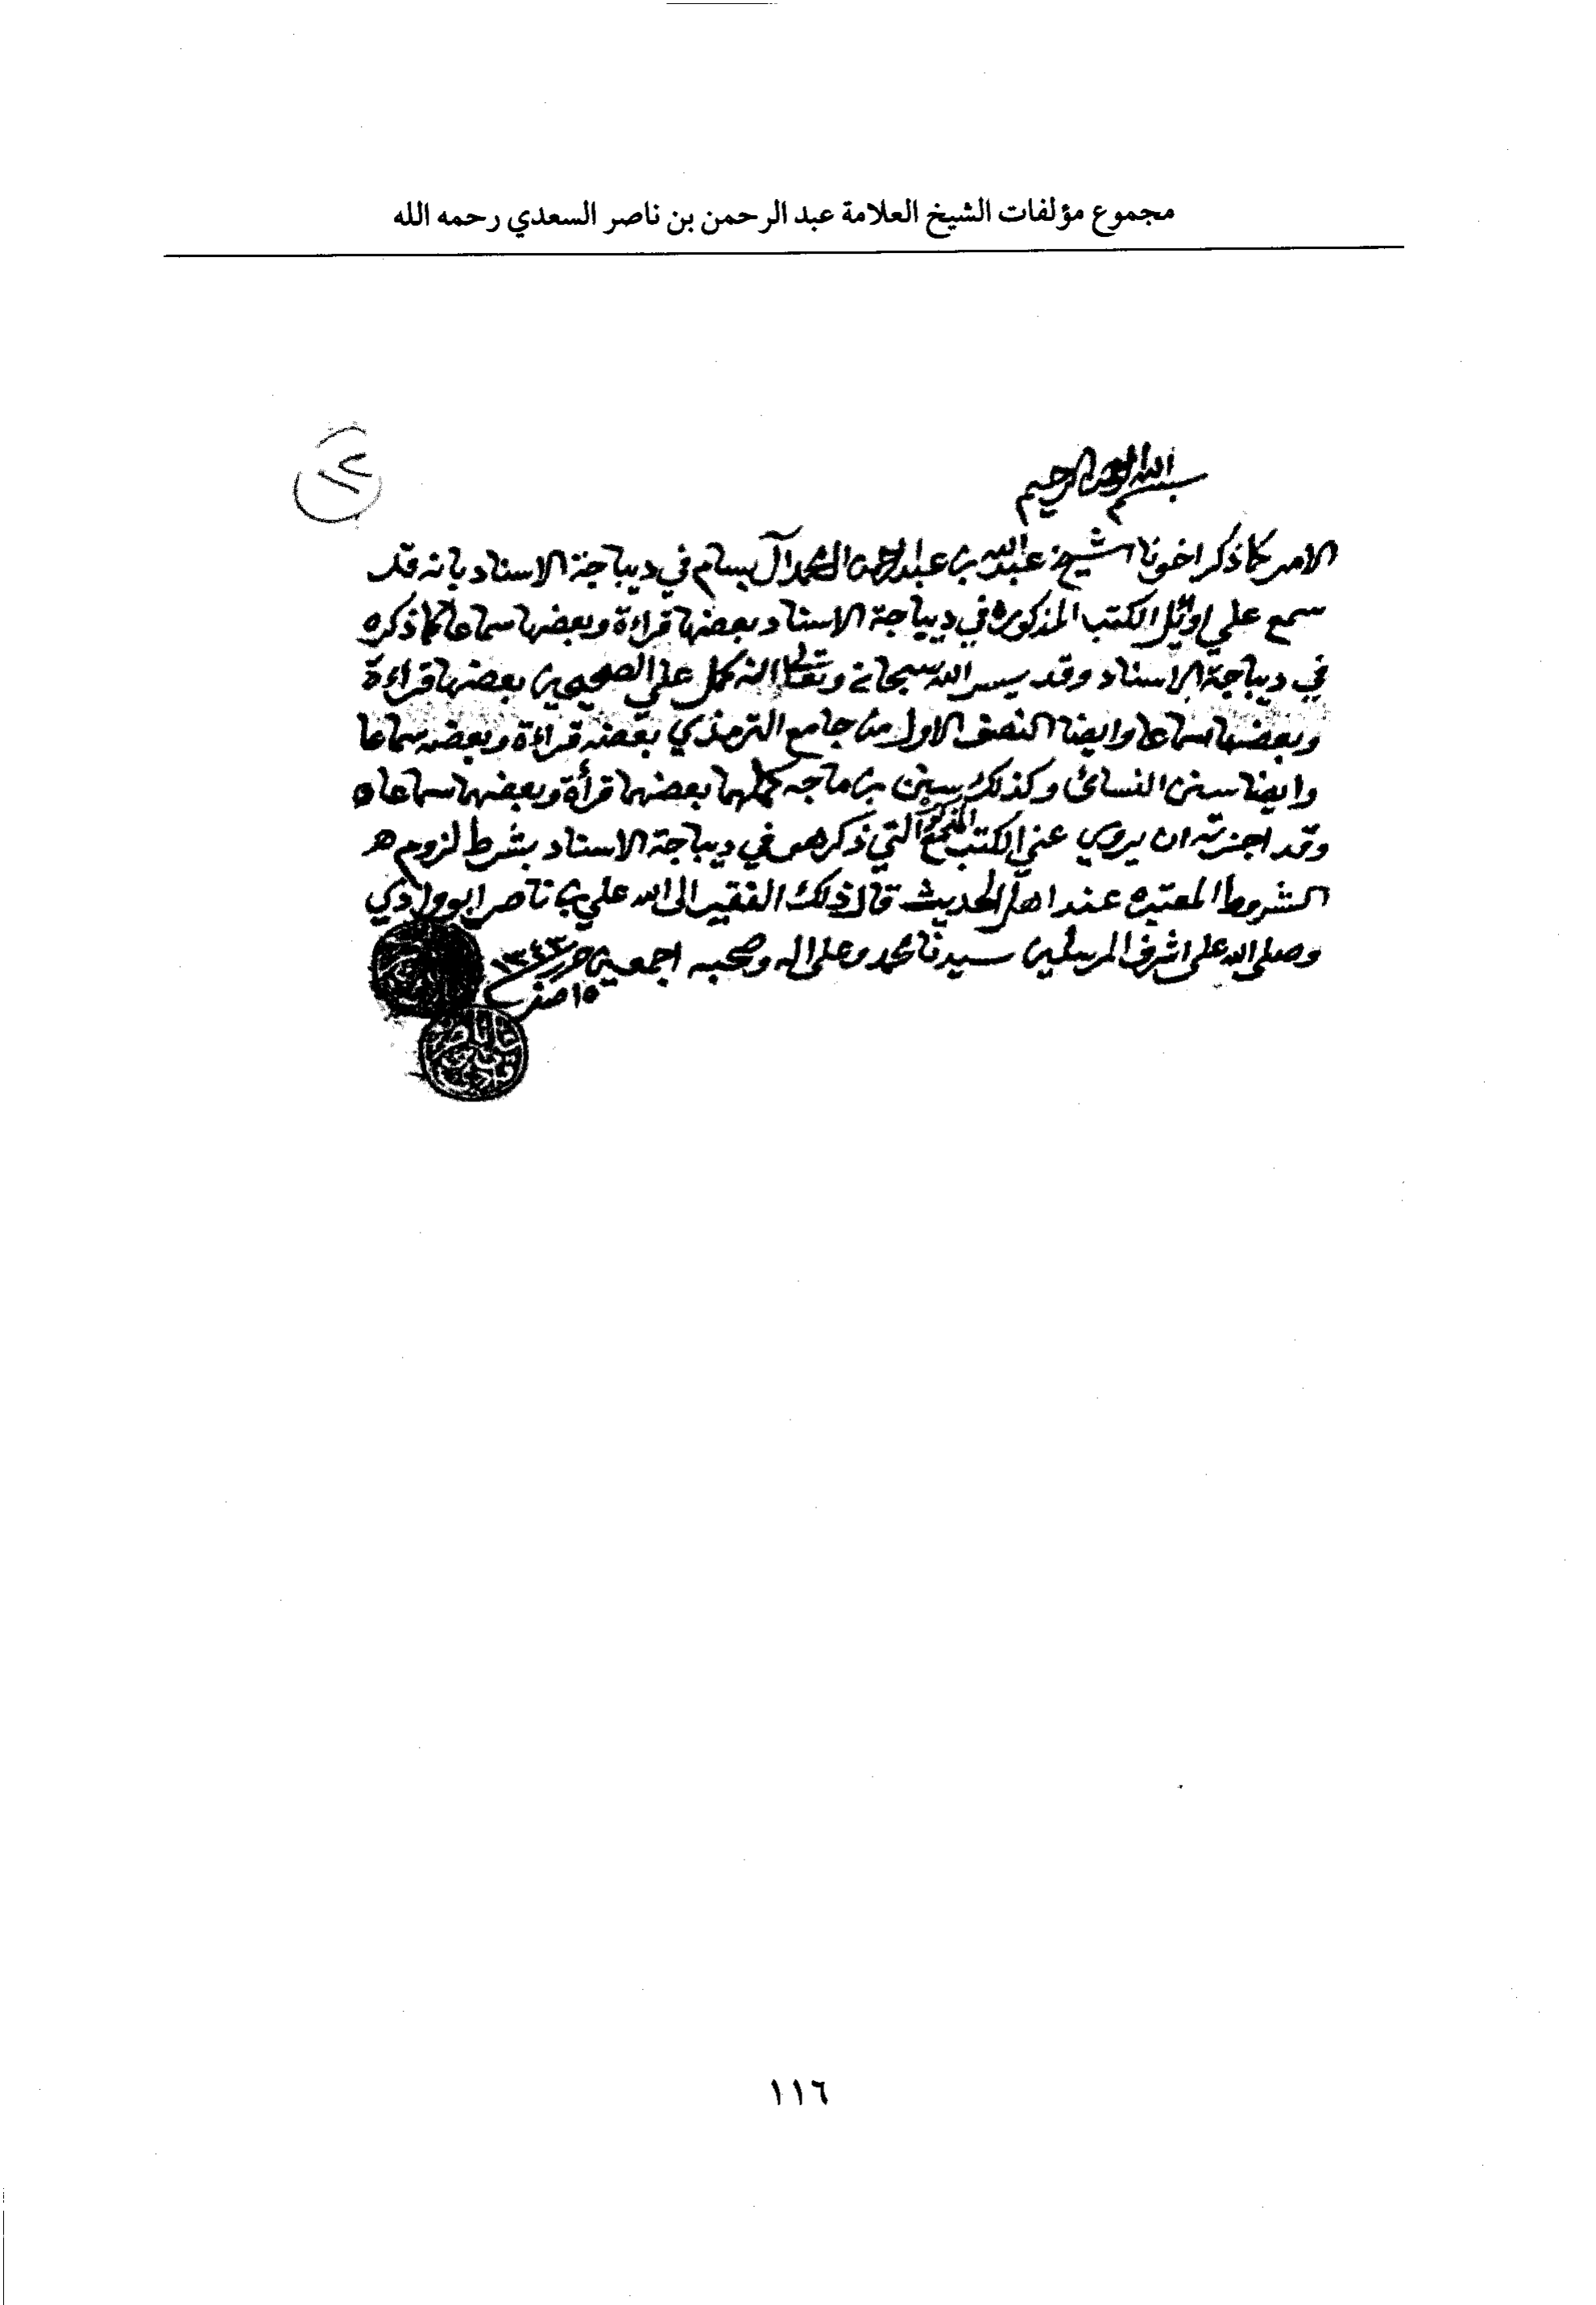 مجموع مؤلفات الشيخ العلامة عبد الرحمن بن ناصر السعدي رحمه الله
١٢
بسم الله الرحمن الرحيم
الامر كما ذكر اخونا الشيخ عبدالله بن عبدالرحمن المحمد آل بسام في ديباجة الاسناد بانه قد
سمع علي اوائل الكتب المذكوره في ديباجة الاسناد بعضها قراءة وبعضها سماعا كما ذكره
في ديباجة الاسناد وقد يسر الله سبحانه وتعالى انه كمل علي الصحيحين بعضها قراءة
وبعضها سماعا وايضا النصف الاول من جامع الترمذي بعضه قراءة وبعضه سماعا
وايضا سنن النسائي وكذلك سنن بن ماجه كملهما بعضهما قرأة وبعضهما سماعا
وقد اجزته ان يروي عني الكتب التي ذكرهم في ديباجة الاسناد بشرط لزومه
الشروط المعتبره عند اهل الحديث قال ذلك الفقير الى الله علي بن ناصر ابو وادي
وصلى الله على اشرف المرسلين سيدنا محمد وعلى اله وصحبه اجمعين حرر ١٣٤٣
١٥ صفر
١١٦